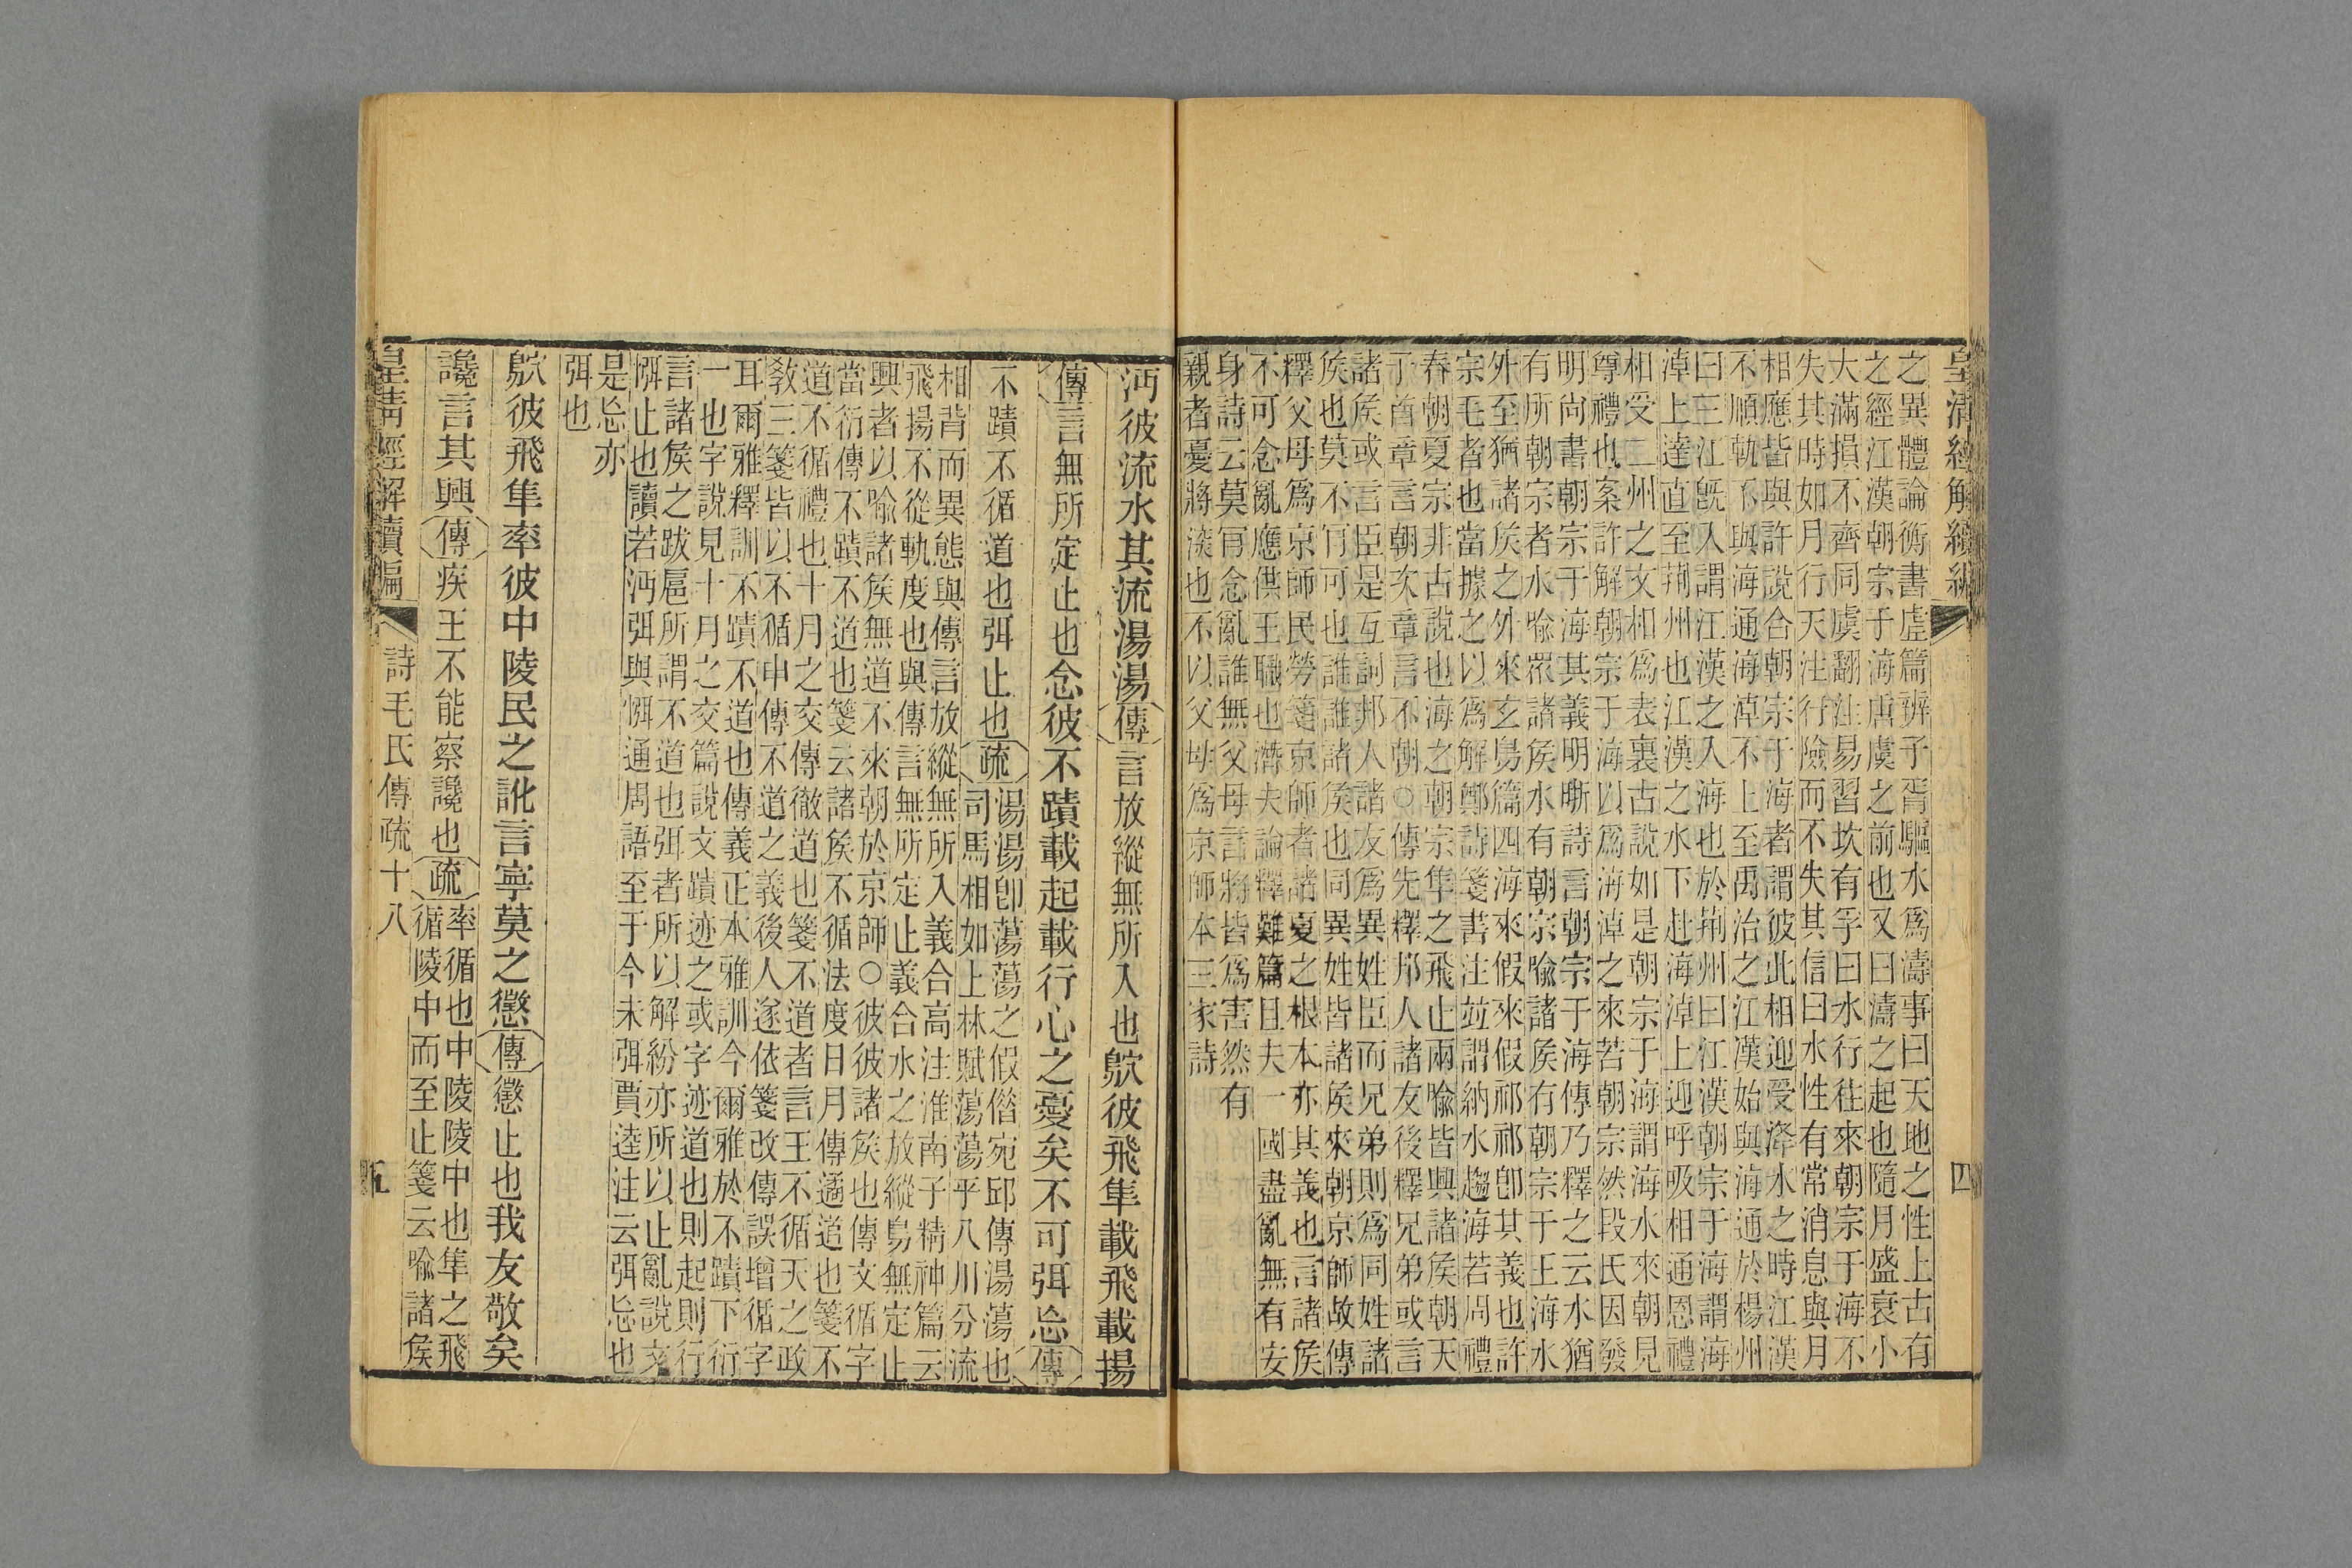 皇清經解續編
四
之異體論衡書虛篇辨子胥驅水爲濤事曰天地之性上古有
之經江漢朝宗于海唐虞之前也又曰濤之起也隨月盛衰小
大滿損不齊同虞翻注易習坎有孚曰水行往來朝宗于海不
失其時如月行天注行險而不失其信曰水性有常消息與月
相應皆與許說合朝宗于海者謂彼此相迎受洚水之時江漢
不順軌不與海通海淖不上至禹治之江漢始與海通於楊州
曰三江旣入謂江漢之入海也於荆州曰江漢朝宗于海謂海
淖上達直至荆州也江漢之水下赴海淖上迎呼吸相通恩禮
相受二州之文相爲表裏古說如是朝宗于海謂海水來朝見
尊禮也案許解朝宗于海以爲海淖之來若朝宗然段氏因發
明尙書朝宗于海其義明晰詩言朝宗于海傳乃釋之云水猶
有所朝宗者水喩眾諸矦水有朝宗喩諸矦有朝宗于王海水
外至猶諸矦之外來玄鳥篇四海來假來假祁祁卽其義也許
宗毛者也當據之以爲解鄭詩箋書注竝謂納水趨海若周禮
春朝夏宗非古說也海之朝宗隼之飛止兩喩皆興諸矦朝天
子首章言朝次章言不朝○傳先釋邦人諸友後釋兄弟或言
諸矦或言臣是互訓邦人諸友爲異姓臣而兄弟則爲同姓諸
矦也莫不肎可也誰誰諸矦也同異姓皆諸矦來朝京師故傳
釋父母爲京師民勞箋京師者諸夏之根本亦其義也言諸矦
不可念亂應供王職也潛夫論釋難篇且夫一國盡亂無有安
身詩云莫肎念亂誰無父母言將皆爲害然有
親者憂將㴱也不以父母爲京師本三家詩
沔彼流水其流湯湯傳言放縱無所入也鴥彼飛隼載飛載揚
傳言無所定止也念彼不蹟載起載行心之憂矣不可弭忘傳
不蹟不循道也弭止也疏湯湯卽蕩蕩之假偺宛邱傳湯蕩也
司馬相如上林賦蕩蕩乎八川分流
相背而異態與傳言放縱無所入義合高注淮南子精神篇云
飛揚不從軌度也與傳言無所定止義合水之放縱鳥無定止
興者以喩諸矦無道不來朝於京師○彼彼諸矦也傳文循字
當衍傳不蹟不道也箋云諸矦不循法度日月傳遹道也箋不
道不循禮也十月之交傳徹道也箋不道者言王不循天之政
敎三箋皆以不循申傳不道之義後人遂依箋改傳誤增循字
耳爾雅釋訓不蹟不道也傳義正本雅訓今爾雅於不蹟下衍
一也字說見十月之交篇說文蹟迹之或字迹道也則起則行
言諸矦之跋扈所謂不道也弭者所以解紛亦所以止亂說文
㥝止也讀若沔弭與㥝通周語至于今未弭賈逵注云弭忘也
是忘亦
弭也
鴥彼飛隼率彼中陵民之訛言寧莫之懲傳懲止也我友敬矣
讒言其興傳疾王不能察讒也疏率循也中陵陵中也隼之飛
循陵中而至止箋云喩諸矦
皇清經解續編
詩毛氏傳疏十八
五